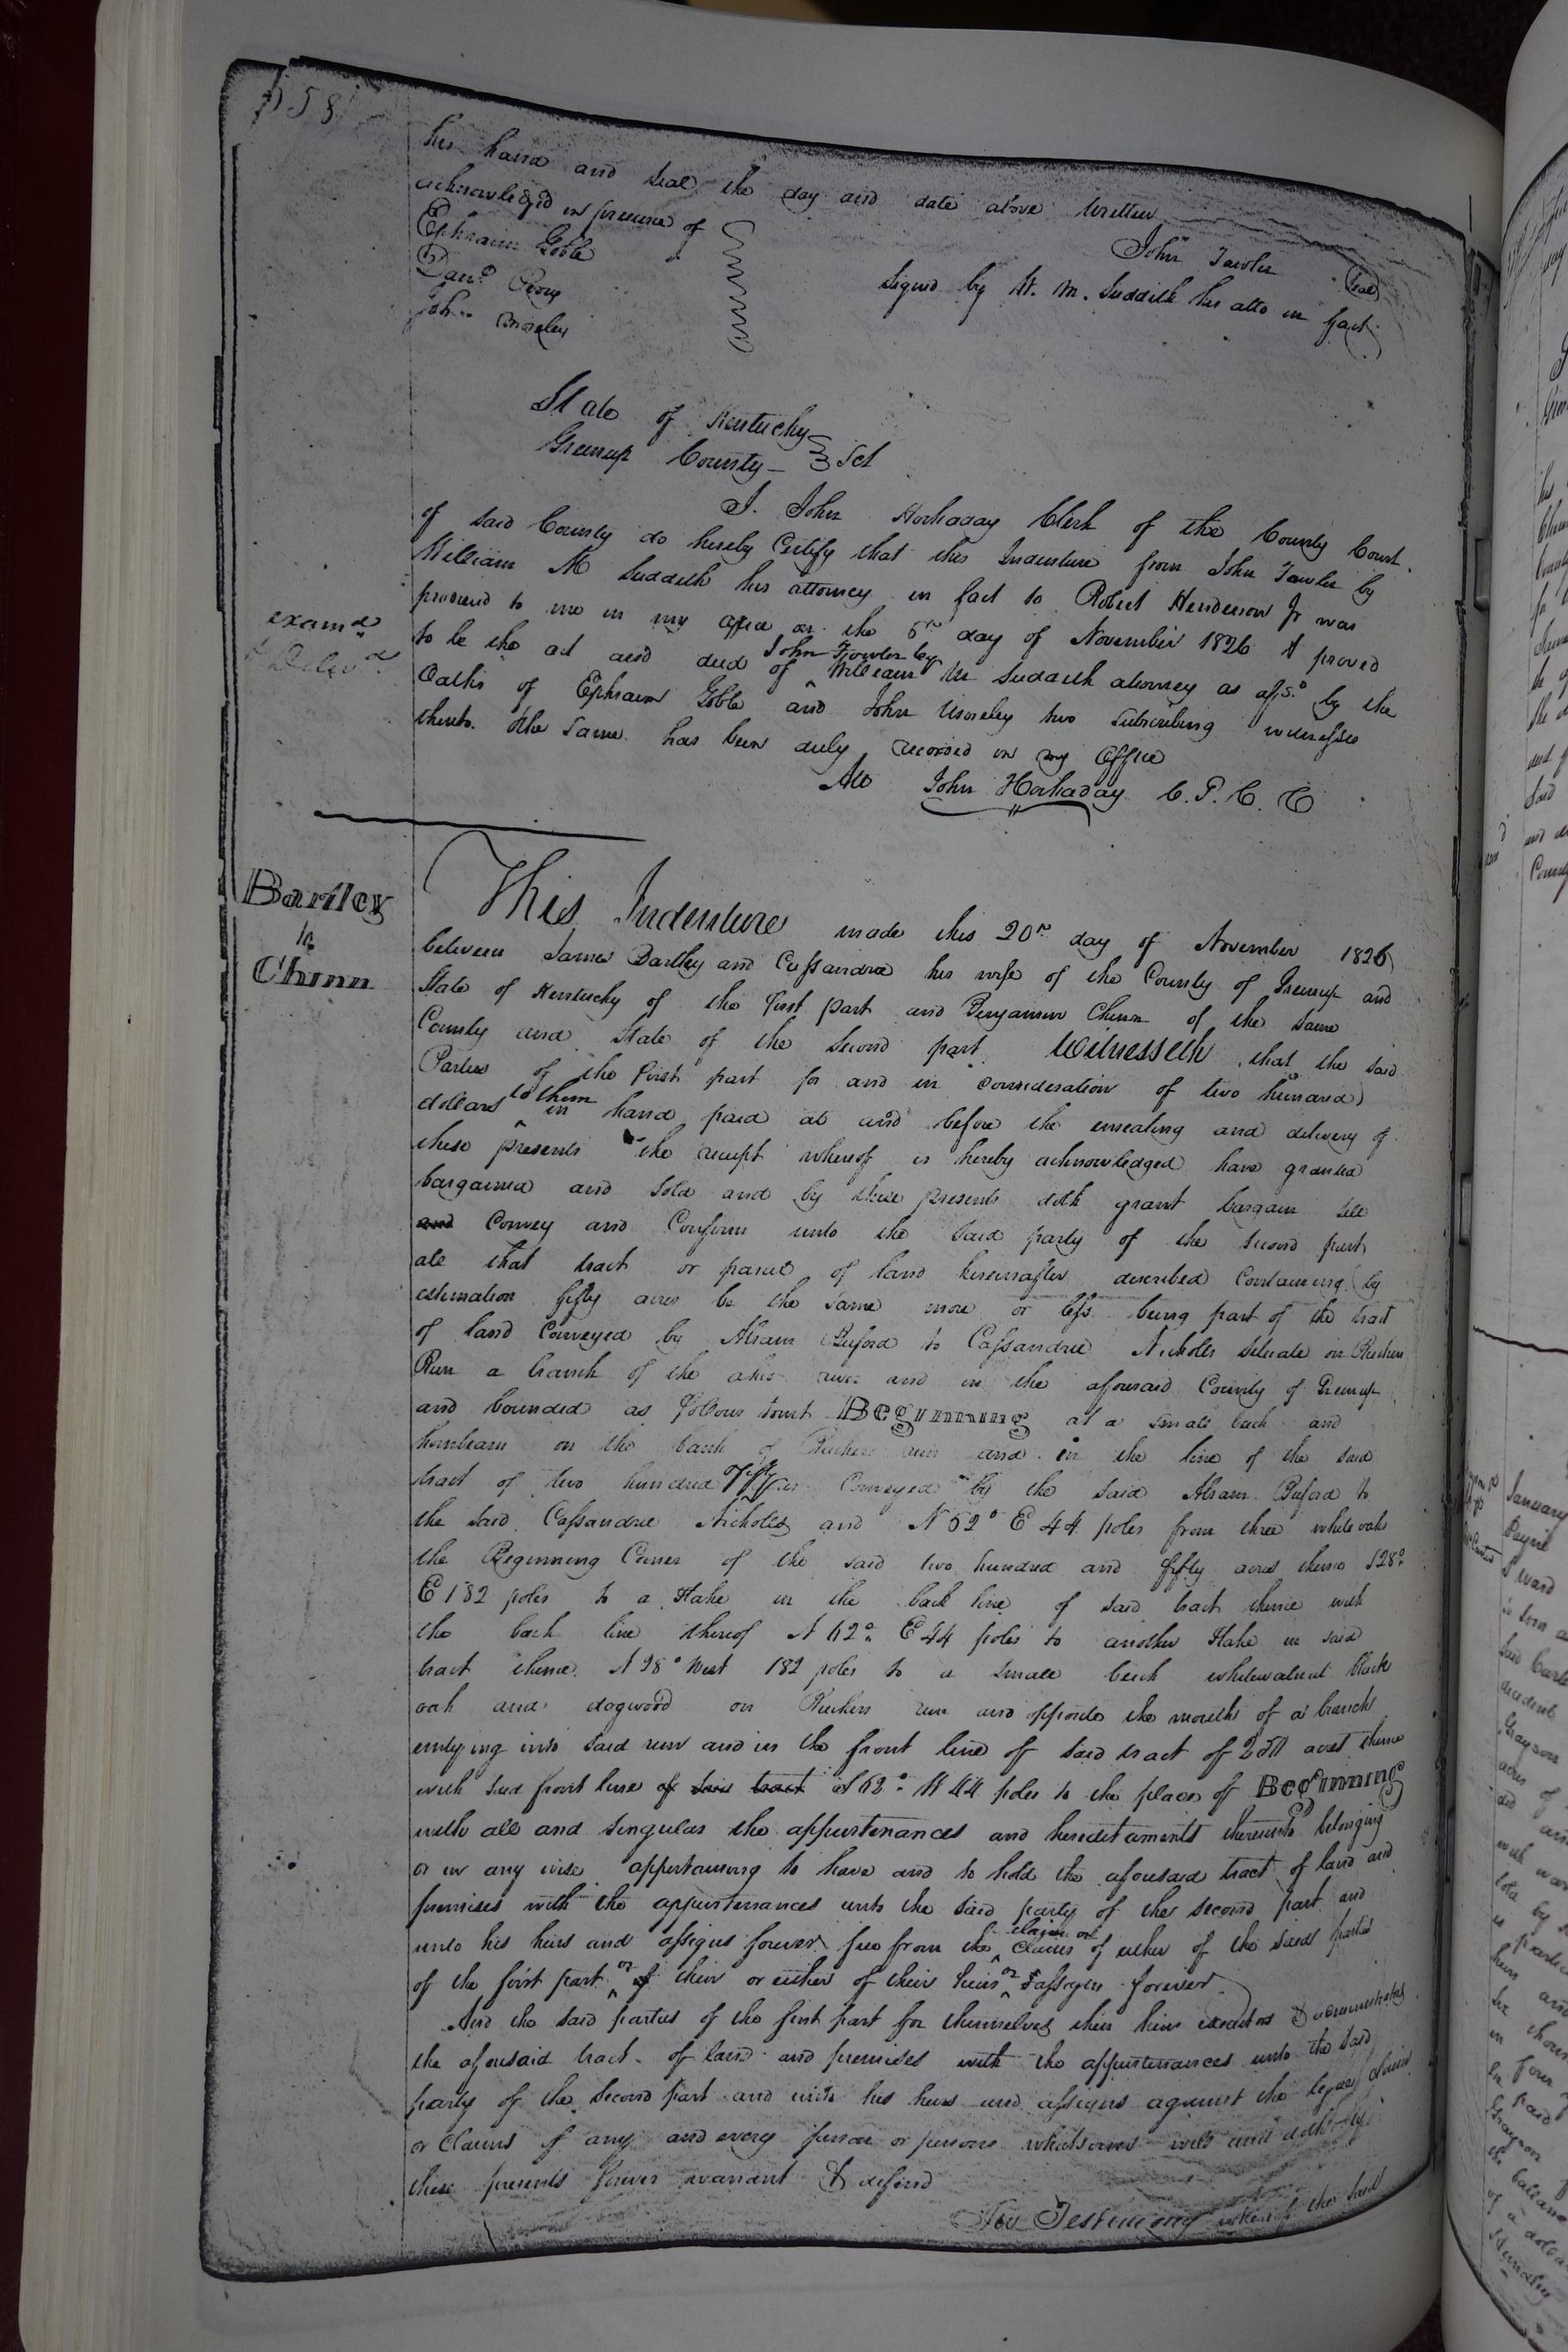 558
his hand and seal the day and date above written
acknowledged in presence of
Ephraim Goble
John Fowler (seal)
signed by W. M. Suddith his atto in fact
John Moseley
State of Kentucky
Greenup County Sct
I. John Hockaday Clerk of the County Court
of said County do hereby Certify that this Indenture from John Fowler by
William M Suddith his attorney in fact to Robert Henderson Jr was
produced to me in my office on the day of November 1826 & proved
to be the act and deed of John Fowler by William M Suddith attorney as afsd by the
Oaths of Ephraim Goble and John Moseley two subscribing witnesses
thereto. the same has been duly recorded in my Office
Att John Hockaday C. G. C. C
examd
& Delivd
Bartley
to
Chinn
This Indenture made this 20th day of November 1826
between James Bartley and Cassandra his wife of the County of Greenup and
State of Kentucky of the first part and Benjamin Chinn of the same
County and State of the second part Witnesseth that the said
Parties of the first part for and in consideration of two hundred
dollars to them in hand paid at and before the ensealing and delivery of
these presents the receipt whereof is hereby acknowledged have granted
bargained and sold and by these presents doth grant bargain sell
and Convey and Confirm unto the said party of the second part
all that tract or parcel of land hereinafter described Containing by
estimation fifty acres be the same more or less being part of the tract
of land Conveyed by Abram Buford to Cassandra Nicholls situate on Ruckers
Run a branch of the ohio river and in the aforesaid County of Greenup
and bounded as follows towit Beginning at a small beech and
hornbeam on the bank of Ruckers run and in the line of the said
tract of two hundred & fifty acres Conveyed by the said Abram Buford to
the said Cassandra Nicholls and N 62° E 44 poles from three white oaks
the Beginning Corner of the said two hundred and fifty acres thence S28°
E 182 poles to a Stake in the back line of said tract thence with
the back line thereof N 62° E 44 poles to another Stake in said
tract thence N 28° West 182 poles to a small beech whitewalnut black
oak and dogwood on Ruckers run and opposite the mouth of a branch
emtying into said run and in the front line of said tract of 250 acres thence
with said front line of said tract S 62° W 44 poles to the place of Beginning
with all and singular the appurtenances and hereditaments thereunto belonging
or in any wise appertaining to have and to hold the aforesaid tract of land and
premises with the appurtenances unto the said party of the second part and
unto his heirs and assigns forever free from the claim or Claims of either of the said parties
of the first part or of their or either of their heirs or assigns forever
And the said parties of the first part for themselves their heirs executors & administrators
the aforesaid tract of land and premises with the appurtenances unto the said
party of the second part and unto his heirs and assigns against the legal claim
or Claims of any and every person or persons whatsoever will and doth by
these presents forever warrant & defend
In Testimony whereof the said